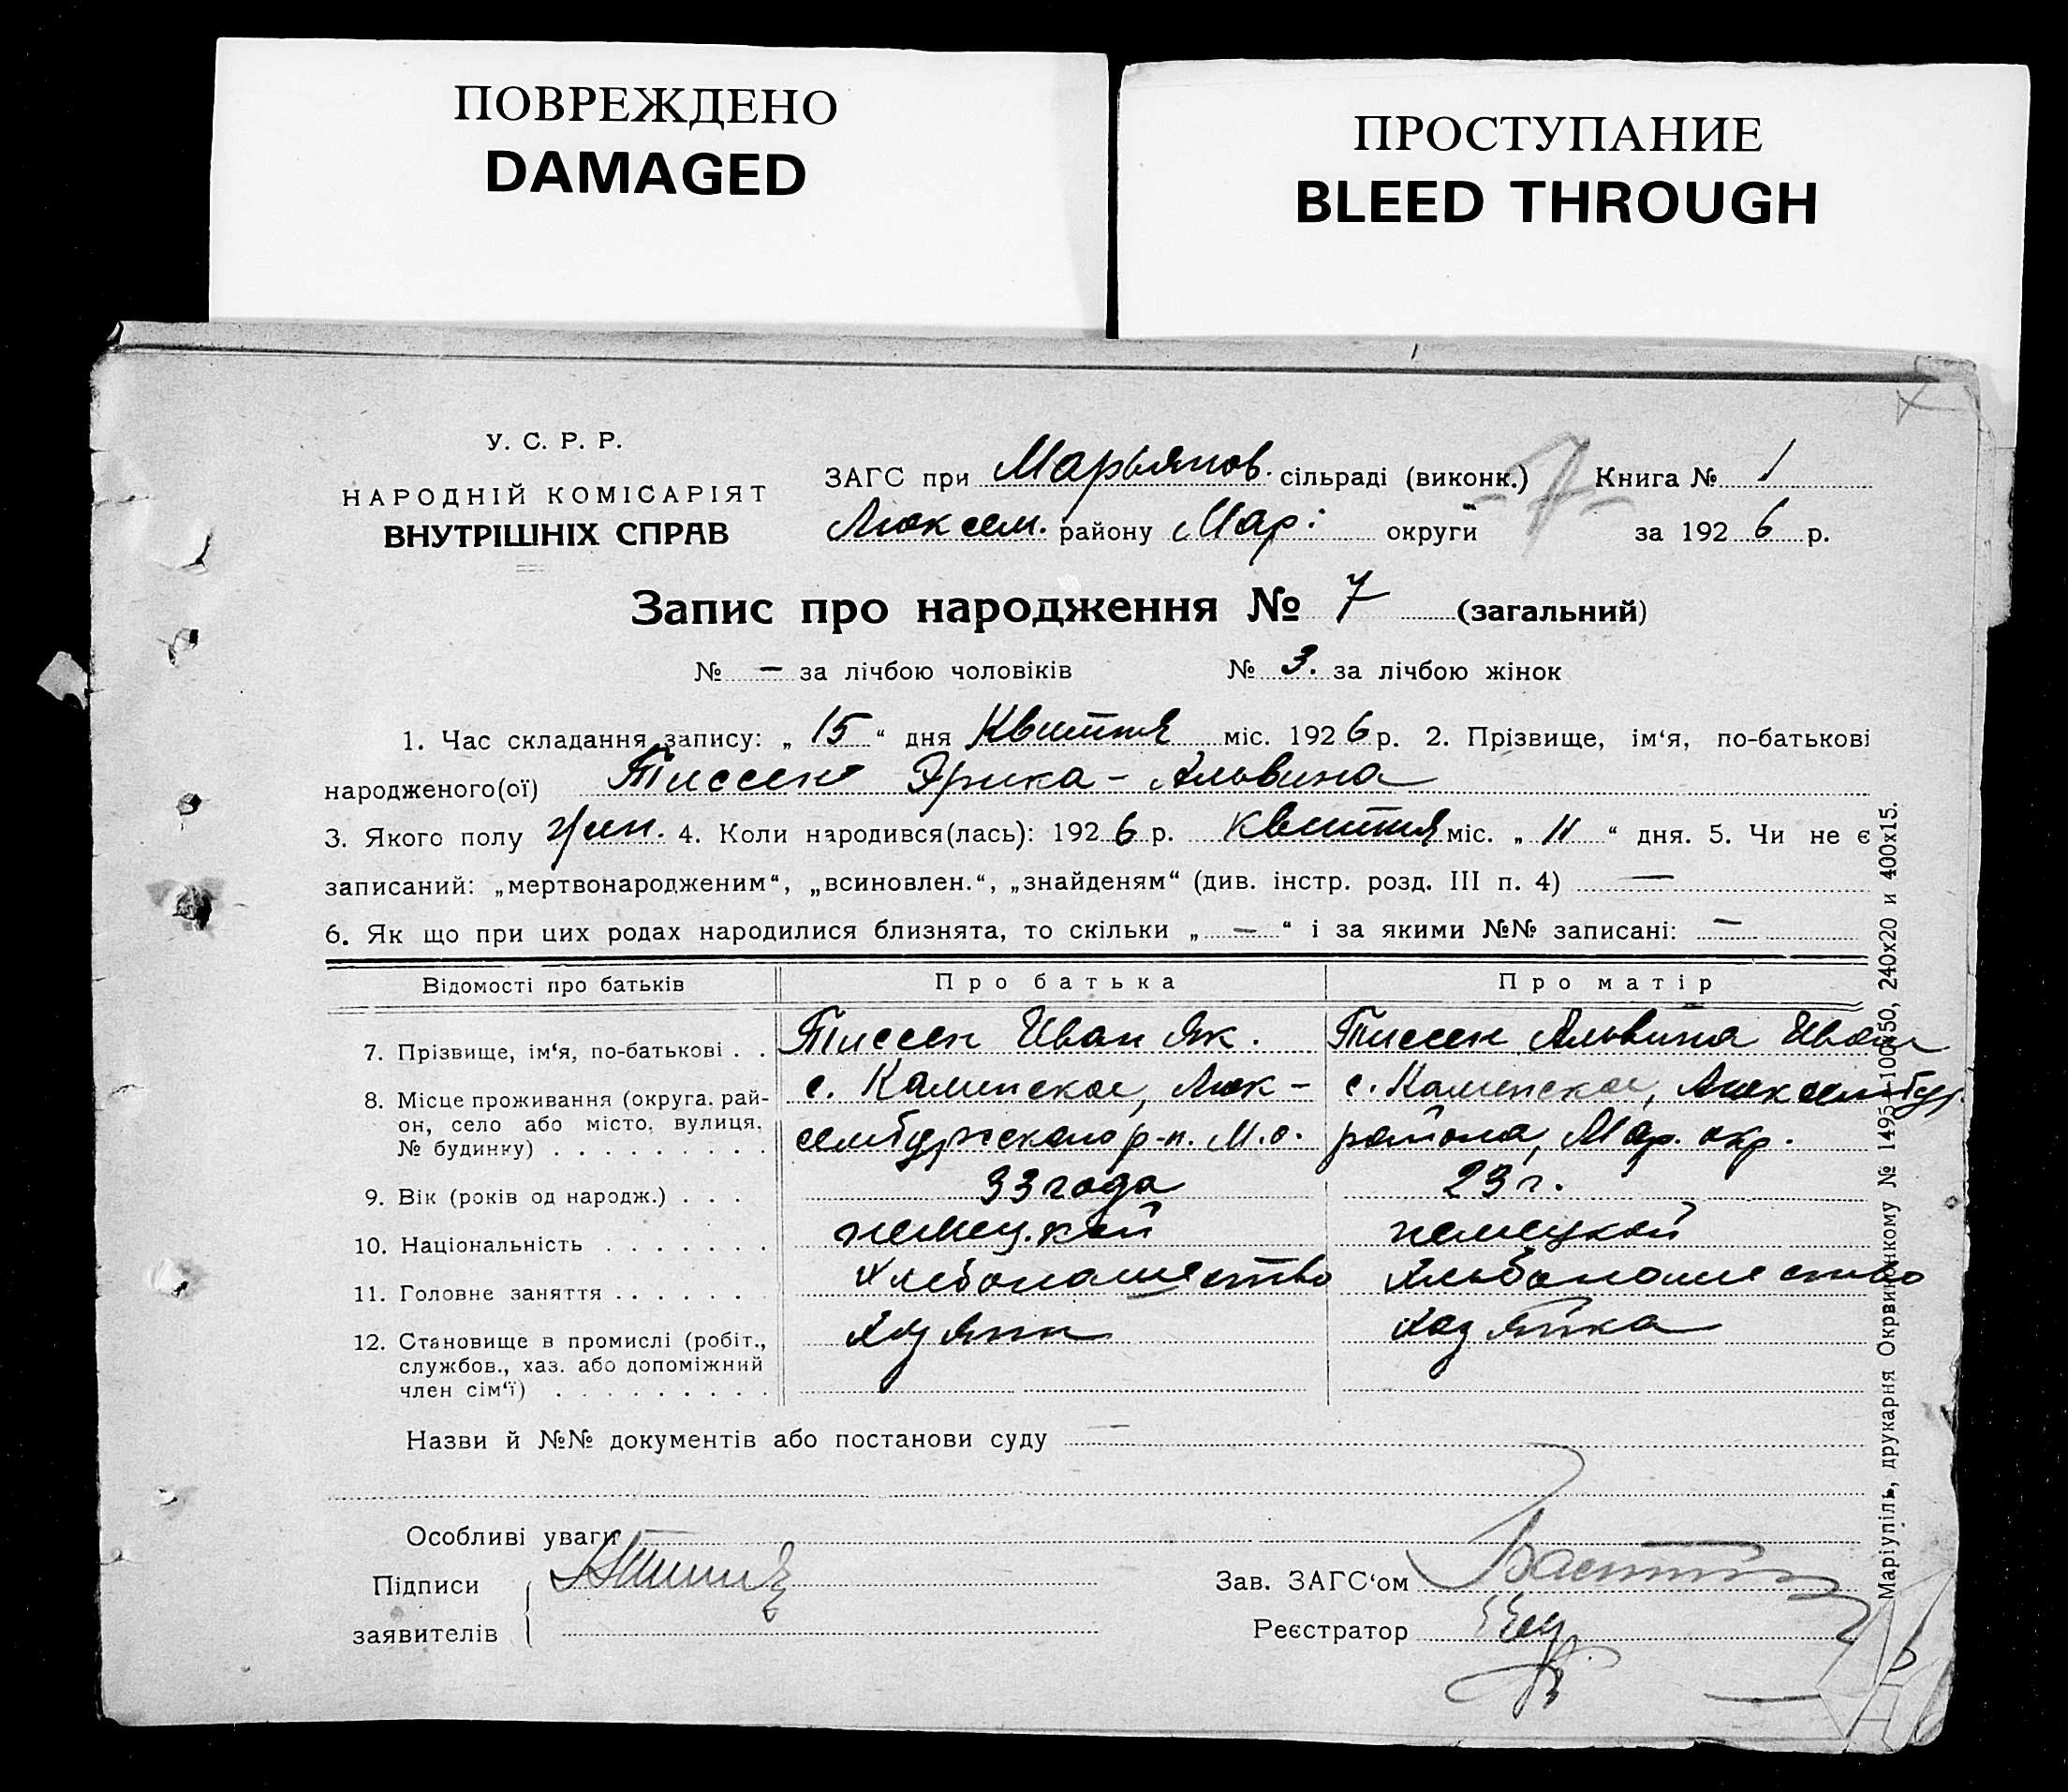 ПОВРЕЖДЕНО
DAMAGED
ПРОСТУПАНИЕ
BLEED THROUGH
У. С. Р. Р.
НАРОДНІЙ КОМІСАРІЯТ
ВНУТРІШНІХ СПРАВ
ЗАГС при Марьянов. сільраді (виконк.) 7 Книга № 1
Люксем. району Мар: округи за 1926 р.
Запис про народження № 7 (загальний)
№ — за лічбою чоловіків № 3. за лічбою жінок
1. Час складання запису: „ 15 “ дня Квиття міс. 1926 р. 2. Прізвище, ім‘я, по-батькові
народженого(ої) Тиссен Эрика - Альвина
3. Якого полу жен. 4. Коли народився(лась): 1926 р. Квиття міс. „ 11 “ дня. 5. Чи не є
записаний: „мертвонародженим“, „всиновлен.“, „знайденям“ (див. інстр. розд. III п. 4) —
6. Як що при цих родах народилися близнята, то скільки „ — “ і за якими №№ записані: —
Відомості про батьків Про батька Про матір
7. Прізвище, ім‘я, по-батькові . . Тиссен Иван Як. Тиссен Альвина Иван
8. Місце проживання (округа, рай- с. Каменское, Люк- с. Каменское, Люксембур.
он, село або місто, вулиця, сембургского р-н. М.о. района, Мар. окр.
№ будинку) . . . . . . . . .
9. Вік (років од народж.) . . . 33 года 23 г.
10. Національність . . . . . . . немец.кой немецкой
11. Головне заняття . . . . . . Хлебопашество Хльбопашество
12. Становище в промислі (робіт., Хозяин Хозяйка
службов., хаз. або допоміжний
член сім‘ї) . . . . . . . . .
Назви й №№ документів або постанови суду —
Особливі уваги —
Підписи
заявителів
Зав. ЗАГС‘ом
Реєстратор
Маріупіль, друкарня Окрвиконкому № 1495—100×50, 240х20 и 400х15.